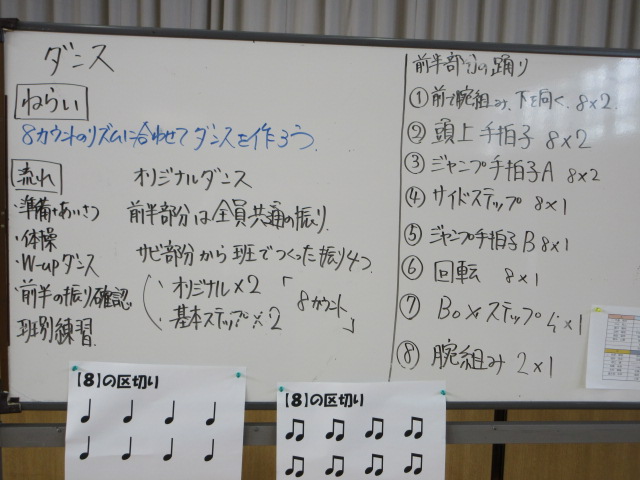 ダンス
ねらい
8カウントのリズムに合わせてダンスを作ろう.
流れ
・準備・あいさつ
・体操
・W-upダンス
・前半の振り確認
班別練習.
オリジナルダンス
前半部分は全員共通の振り.
サビ部分から班でつくった振り4つ.
・オリジナル×2
・基本ステップ×2
「8カウント」
前半部分の踊り
①前で腕組み、下を向く. 8×2.
②頭上手拍子 8×2
③ジャンプ手拍子A 8×2
④サイドステップ 8×1
⑤ジャンプ手拍子B 8×1
⑥回転 8×1
⑦Boxステップ 4×1
⑧腕組み 2×1
【8】の区切り
【8】の区切り